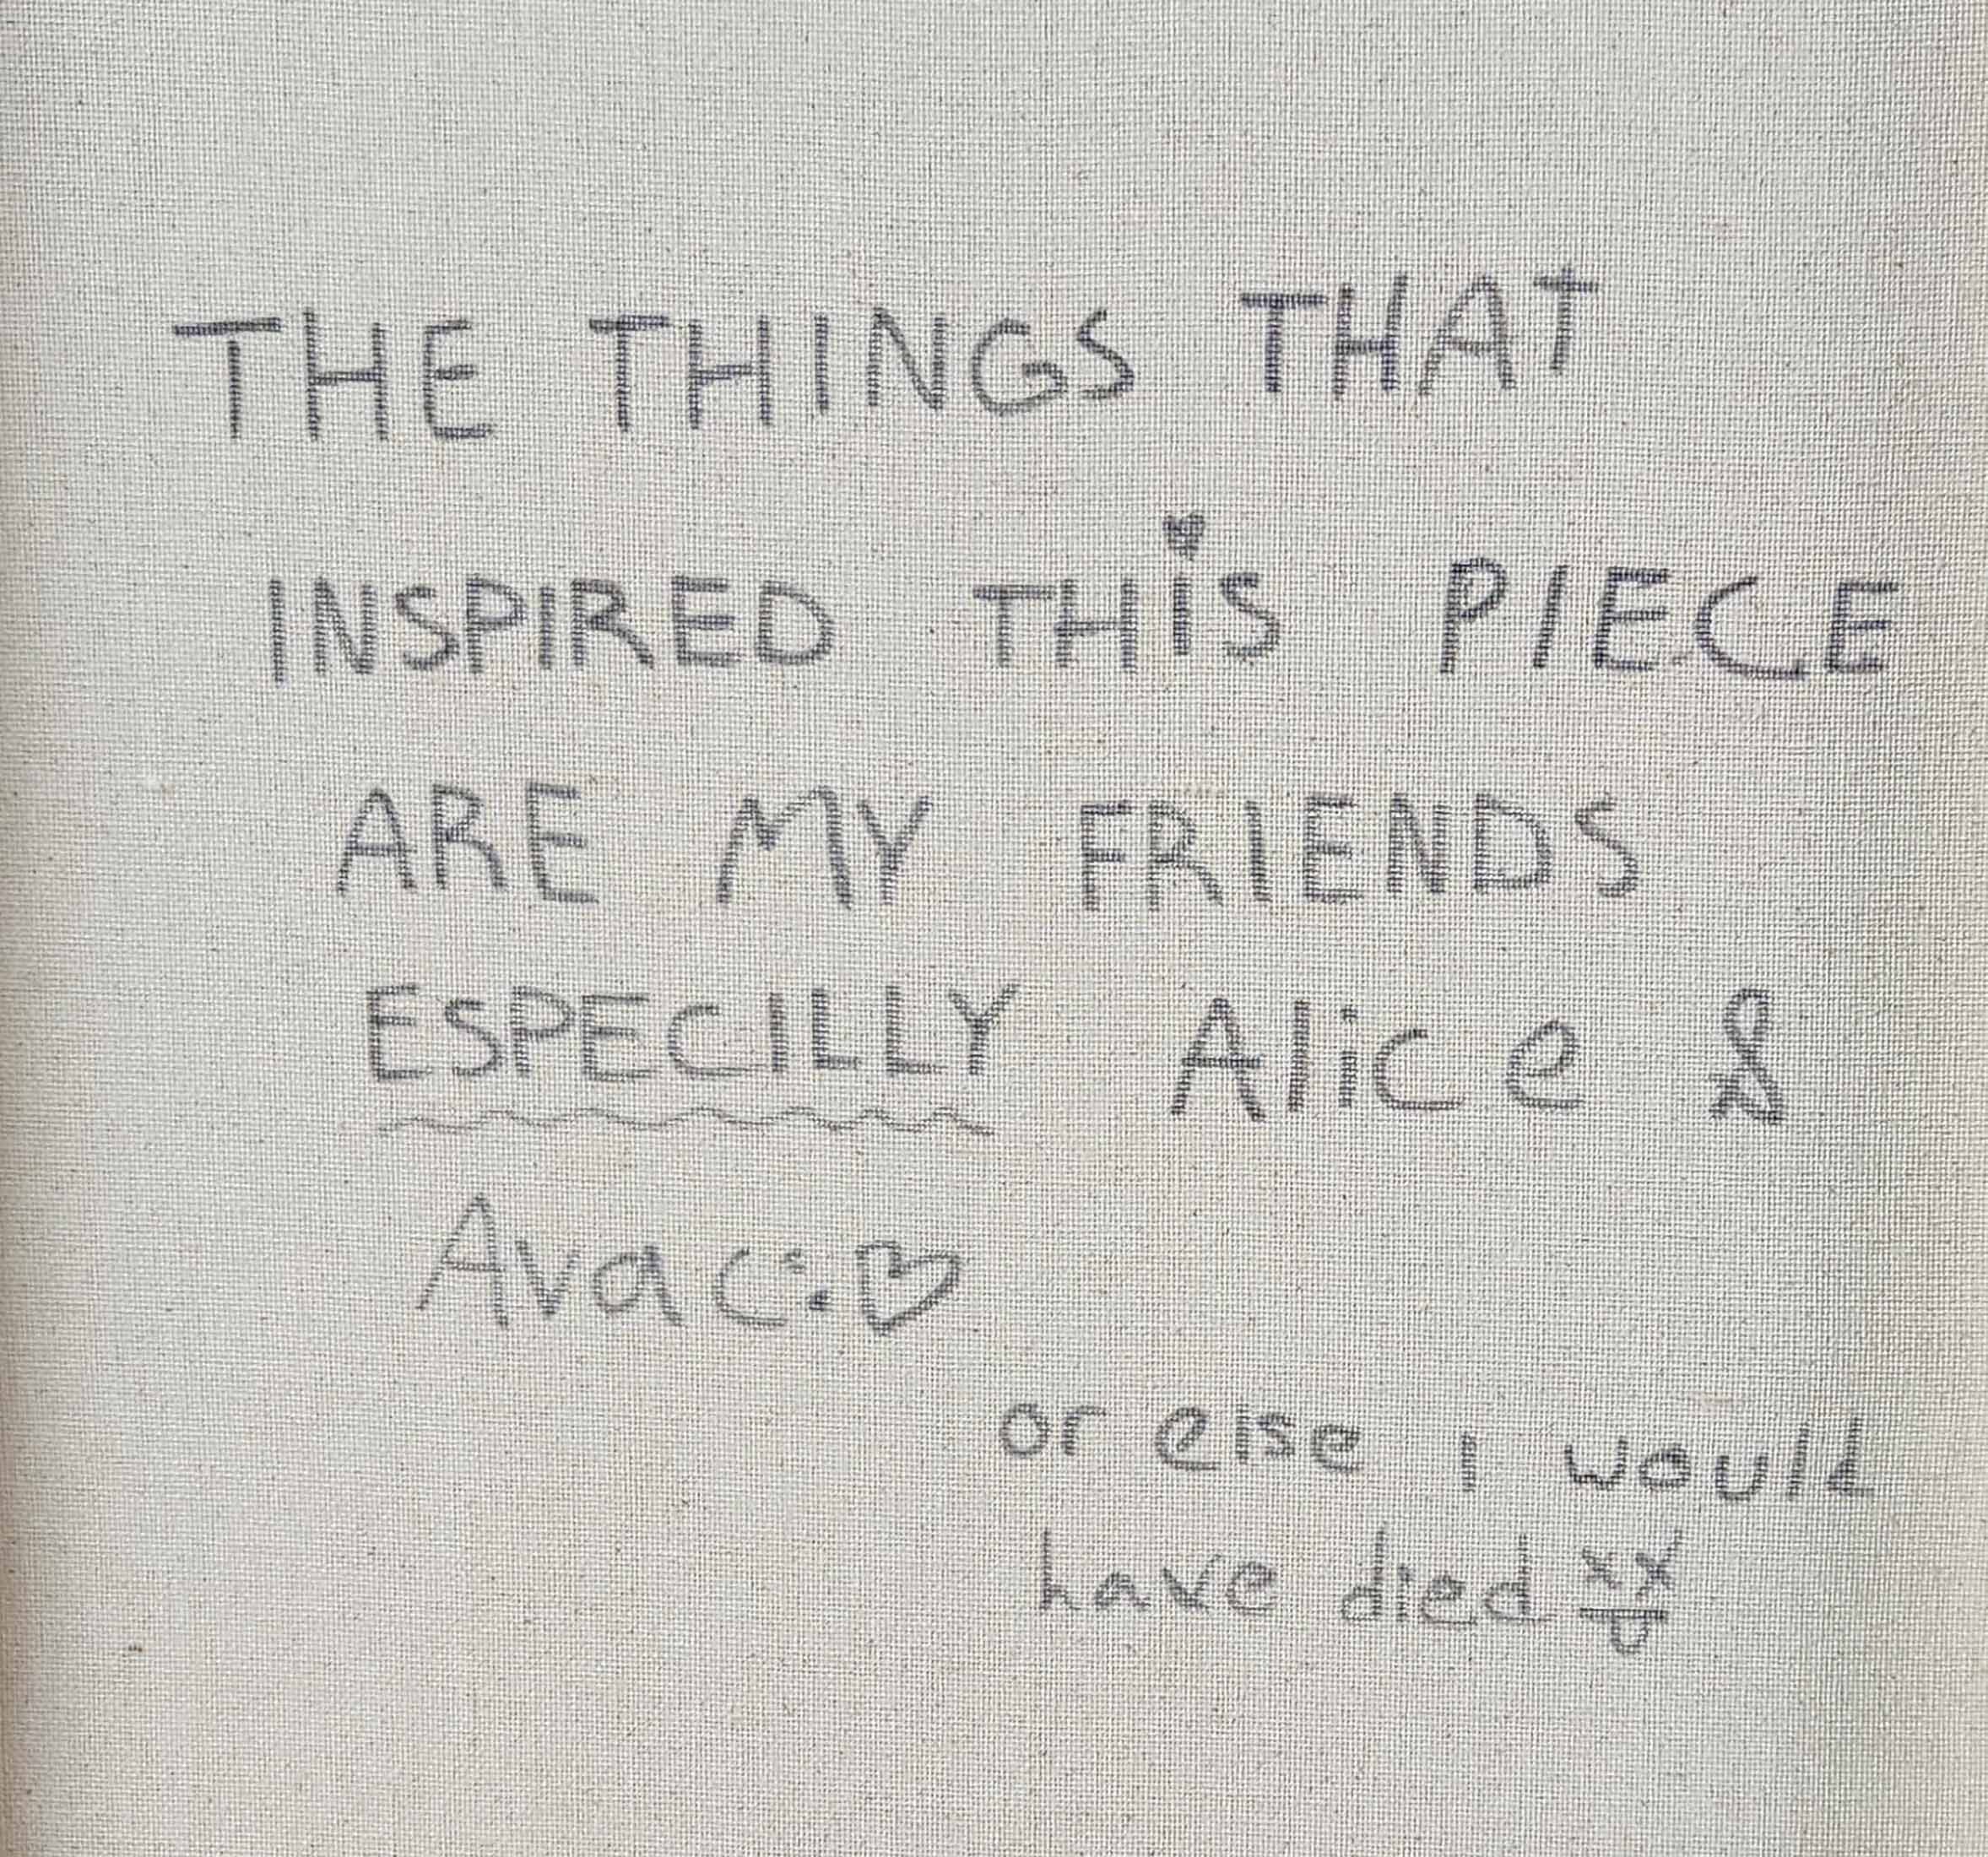 THE THINGS THAT
INSPIRED THiS PIECE
ARE MY FRIENDS
ESPECILLY Alice &
Ava c: ♡
or else i would
have died